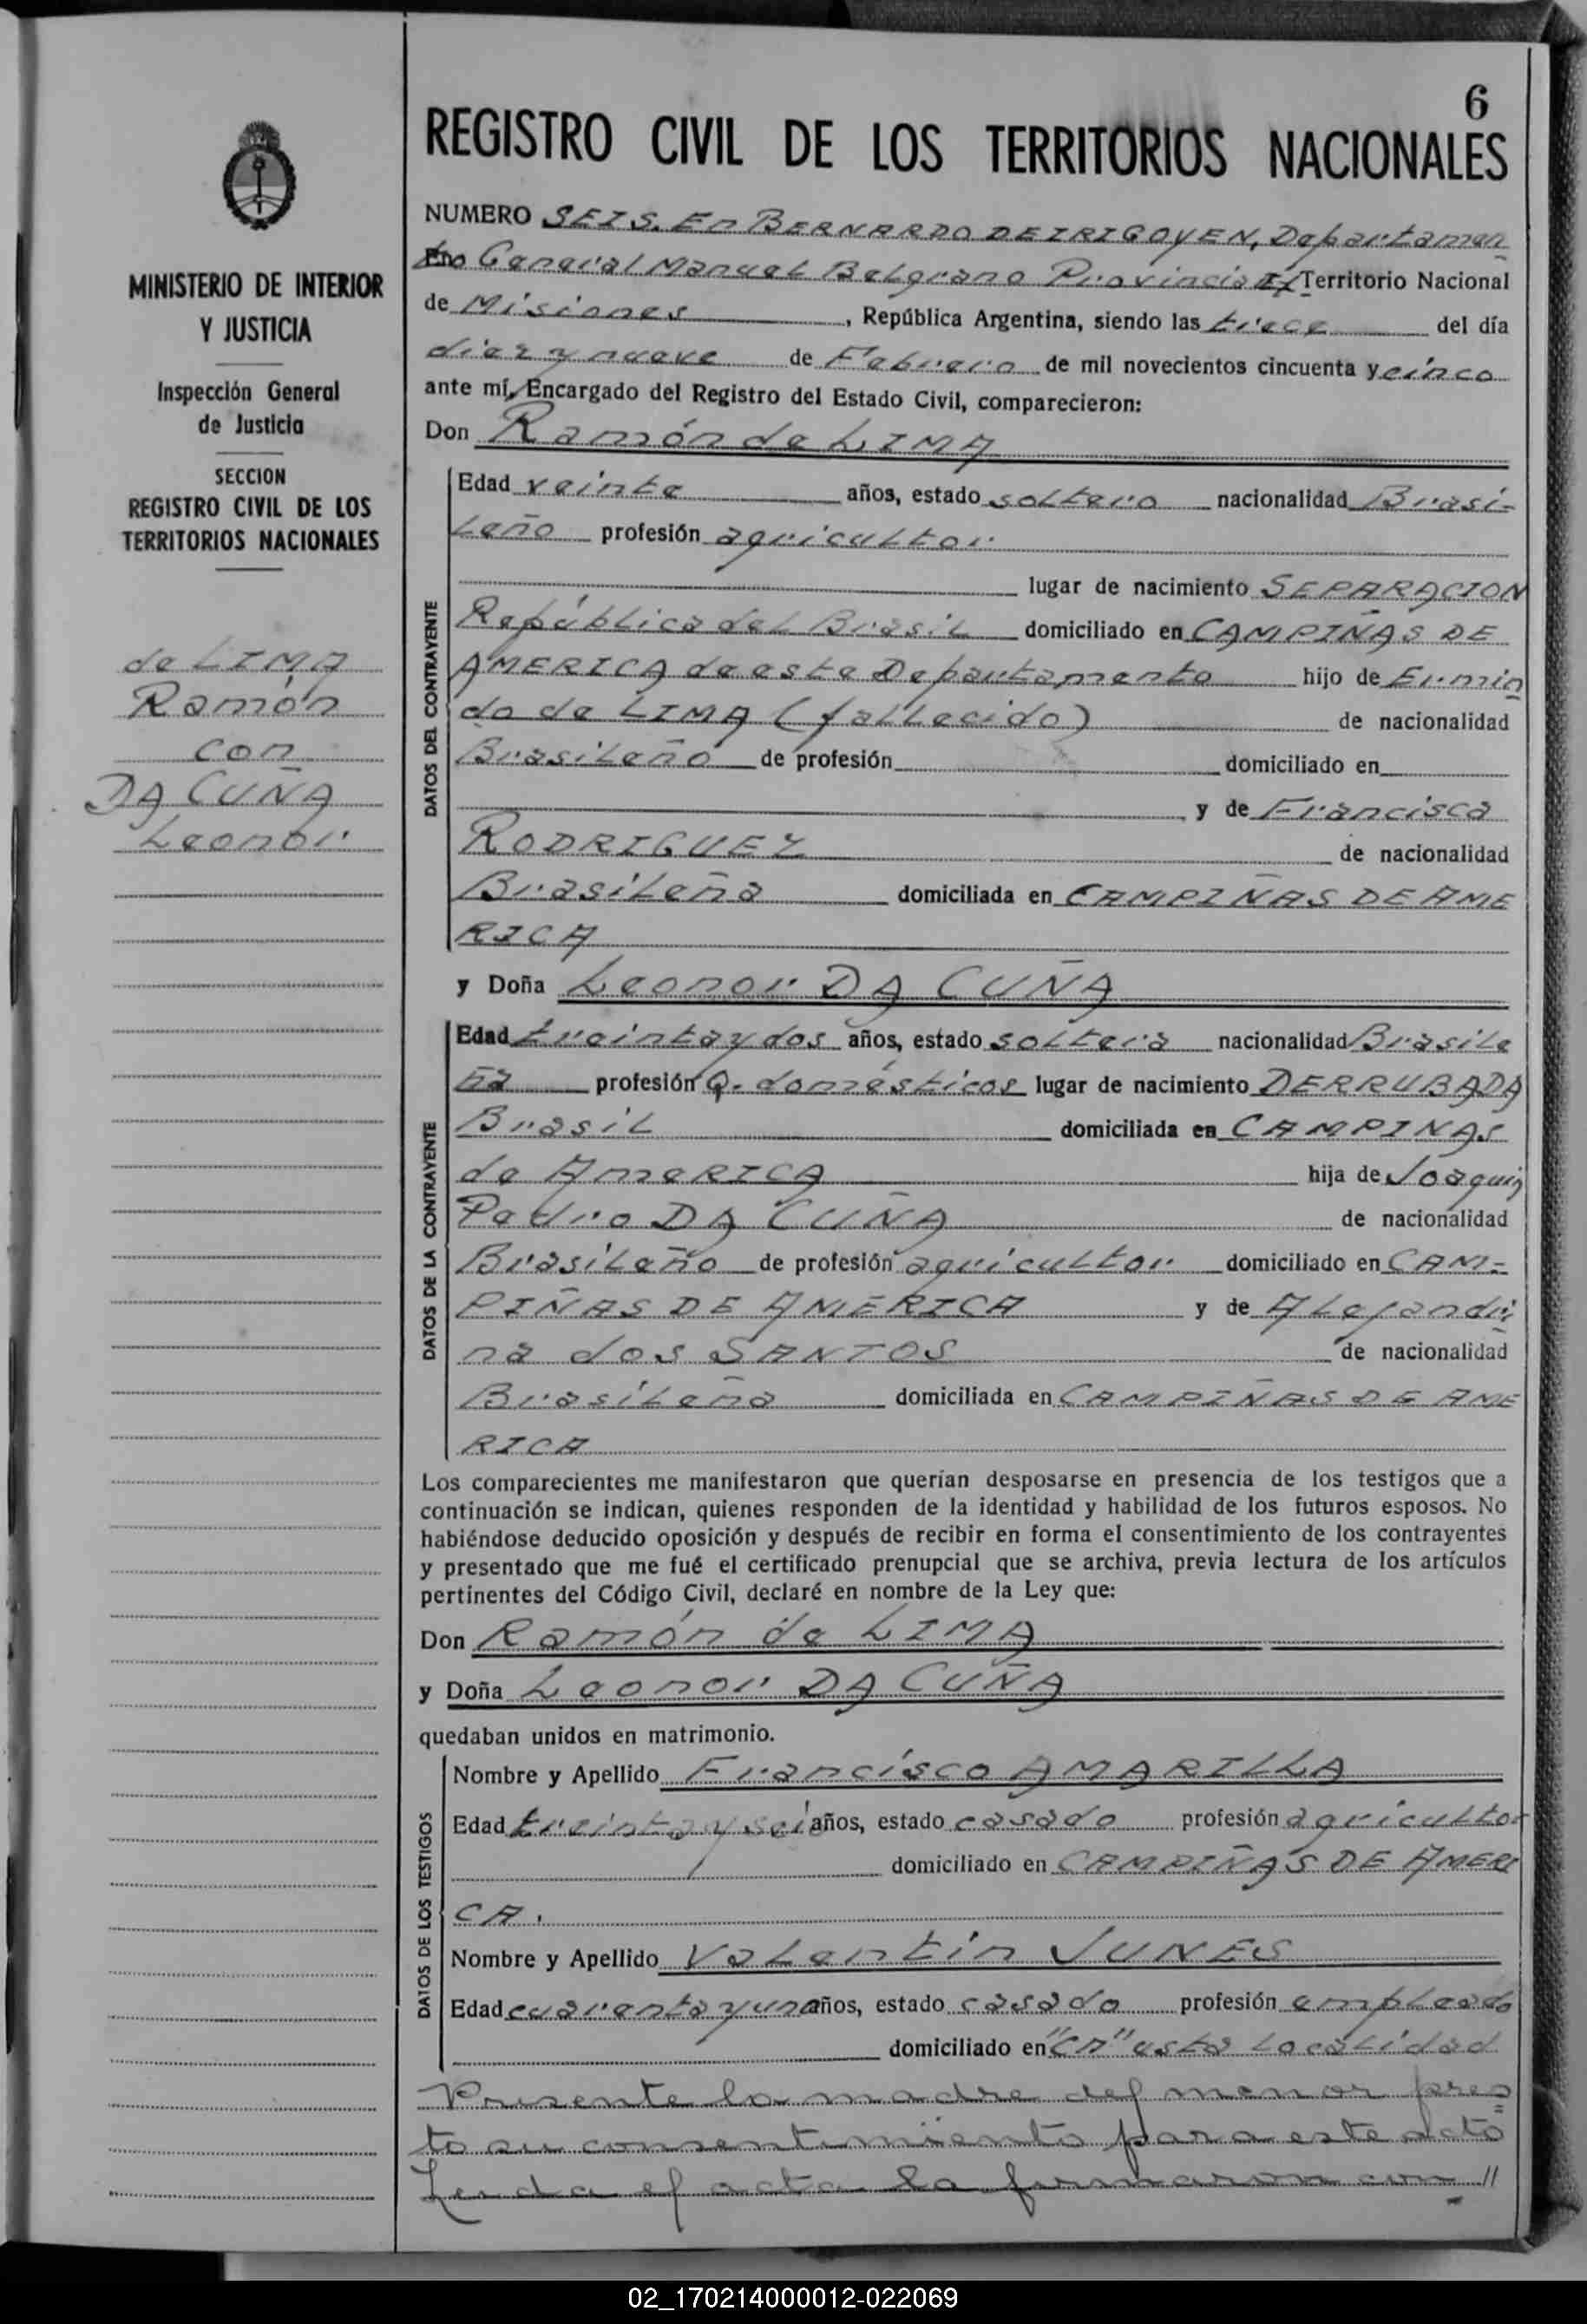 6
REGISTRO CIVIL DE LOS TERRITORIOS NACIONALES
NUMERO SEIS. En BERNARDO DE IRIGOYEN, Departamen
to General Manuel Belgrano Provincia Territorio Nacional
de Misiones, República Argentina, siendo las trece del día
diez y nueve de Febrero de mil novecientos cincuenta y cinco
ante mí, Encargado del Registro del Estado Civil, comparecieron:
Don Ramón de LIMA
DATOS DEL CONTRAYENTE
Edad veinte años, estado soltero nacionalidad Brasi-
leño profesión agricultor
lugar de nacimiento SEPARACION
República del Brasil domiciliado en CAMPIÑAS DE
AMERICA de este Departamento hijo de Ermin
do de LIMA (fallecido) de nacionalidad
Brasileño de profesión domiciliado en
y de Francisca
RODRIGUEZ de nacionalidad
Brasileña domiciliada en CAMPIÑAS DE AME
RICA
y Doña Leonor DA CUÑA
DATOS DE LA CONTRAYENTE
Edad treinta y dos años, estado soltera nacionalidad Brasile
ña profesión Q. domésticos lugar de nacimiento DERRUBADA
Brasil domiciliada en CAMPINAS
de AmeRICA hija de Joaquin
Pedro DA CUÑA de nacionalidad
Brasileño de profesión agricultor domiciliado en CAM-
PIÑAS DE AMERICA y de Alejandri
na dos SANTOS de nacionalidad
Brasileña domiciliada en CAMPIÑAS DE AME
RICA
Los comparecientes me manifestaron que querían desposarse en presencia de los testigos que a
continuación se indican, quienes responden de la identidad y habilidad de los futuros esposos. No
habiéndose deducido oposición y después de recibir en forma el consentimiento de los contrayentes
y presentado que me fué el certificado prenupcial que se archiva, previa lectura de los artículos
pertinentes del Código Civil, declaré en nombre de la Ley que:
Don Ramón de LIMA
y Doña Leonor DA CUÑA
quedaban unidos en matrimonio.
DATOS DE LOS TESTIGOS
Nombre y Apellido Francisco AMARILLA
Edad treinta y seis años, estado casado profesión agricultor
domiciliado en CAMPIÑAS DE AMERI
CA.
Nombre y Apellido Valentín JUNES
Edad cuarenta y un años, estado casado profesión empleado
domiciliado en "en" esta localidad
Presente la madre del menor pres
to su consentimiento para este acto
Leida el acta la firmaron con //
MINISTERIO DE INTERIOR
Y JUSTICIA
Inspección General
de Justicia
SECCION
REGISTRO CIVIL DE LOS
TERRITORIOS NACIONALES
de LIMA
Ramón
con
DA CUÑA
Leonor
02_170214000012-022069